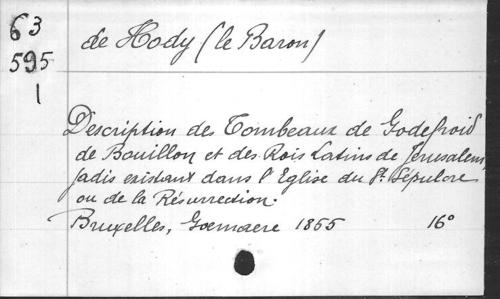 63
595
1
de Hody (le Baron)
Description des Tombeaux de Godefroid
de Bouillon et des Rois Latins de Jérusalem,
jadis existant dans l'Eglise du St. Sépulcre
ou de la Résurrection.
Bruxelles, Goemaere 1855 16°